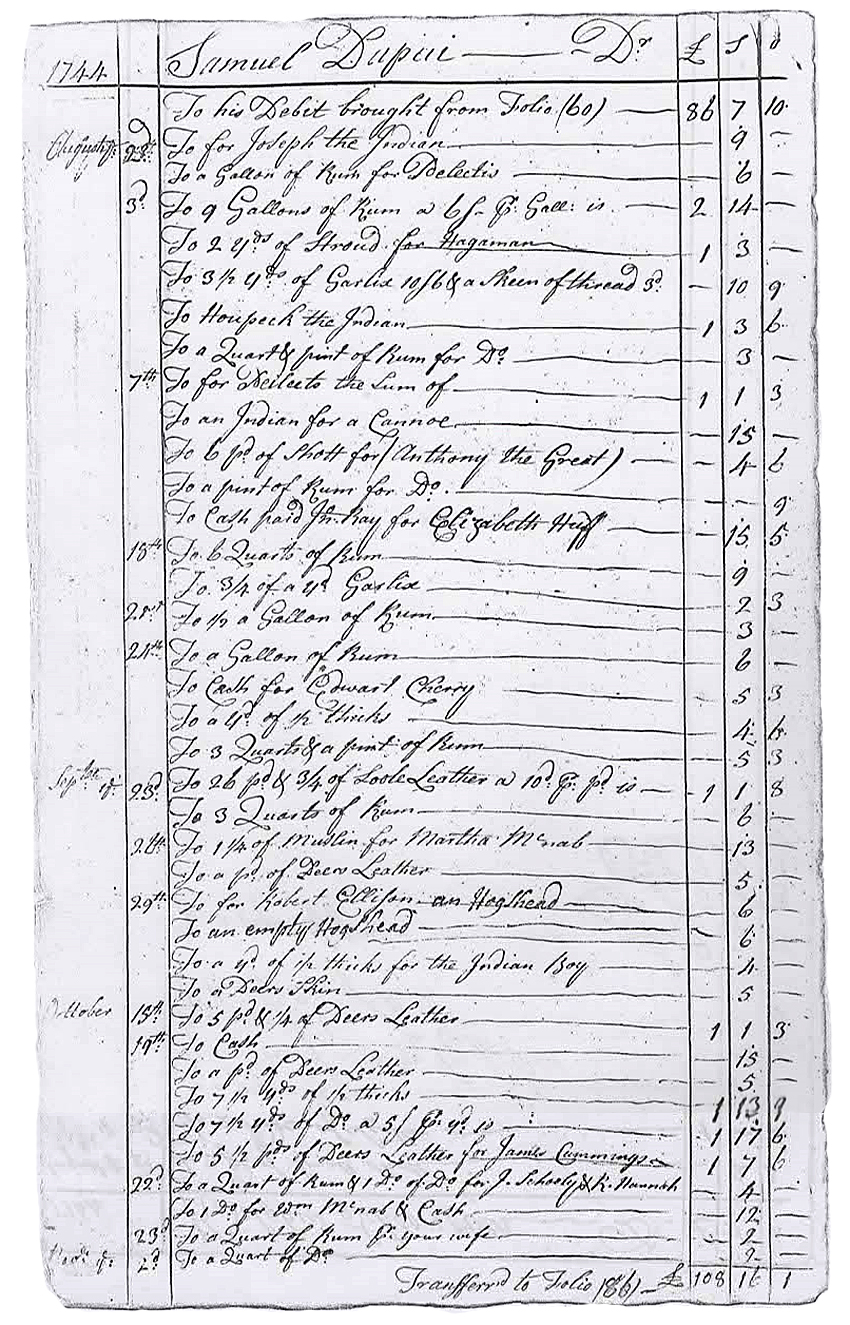 1744 Samuel Dupui — Dr £ S d
To his Debit brought from Folio (60) — 86 7 10
August ye 2d To for Joseph the Indian — 9 —
To a Gallon of Rum for Delectis — 6 —
3d To 9 Gallons of Rum a 6/- Pr Gall: is — 2 14 —
To 2 yds of Stroud for Hagaman — 1 3 —
To 3 1/2 yds of Garlix 10/6 & a Skeen of thread 3d — 10 9
To Houpeck the Indian — 1 3 6
To a Quart & pint of Rum for Do — 3 —
7th To for Deilects the Sum of — 1 1 3
To an Indian for a Cannoe — 15 —
To 6 pd of Shott for (Anthony the Great) — 4 6
To a pint of Rum for Do — — 9
To Cash paid Jn Kay for Elizabeth Huff — 15 5
18th To 6 Quarts of Rum — 9 —
To 3/4 of a yd Garlix — 2 3
To 1/2 a Gallon of Rum — 3 —
24th To a Gallon of Rum — 6 —
To Cash for Edwart Cherry — 5 3
To a yd of 1/2 thicks — 4 6
To 3 Quarts & a pint of Rum — 5 3
Septbr ye 23d To 26 pd & 3/4 of Soole Leather a 10d Pr pd is — 1 1 8
To 3 Quarts of Rum — 6 —
To 1 1/4 of Muslin for Martha Mcnab — 13 —
To a pd of Deers Leather — 5 —
29th To for Robert Ellison an Hogshead — 6 —
To an empty Hogshead — 6 —
To a yd of 1/2 thicks for the Indian Boy — 4 —
To a Deers Skin — 5
October 15th To 5 pd & 1/4 of Deers Leather — 1 1 3
19th To Cash — 15 —
To a pd of Deers Leather — 5 —
To 7 1/2 yds of 1/2 thicks — 1 13 9
To 7 1/2 yds of Do a 5/ Pr yd is — 1 17 6
To 5 1/2 pds of Deers Leather for James Cummings — 1 7 6
22d To a Quart of Rum & 1 Do of Do for J. Schooly & R. Hannah — 4 —
To 1 Do for Wm Mcnab & Cash — 12 —
23d To a Quart of Rum Pr your wife — 2 —
2d To a Quart of Do — 2 —
Transferrd to Folio (86) — £ 108 16 1